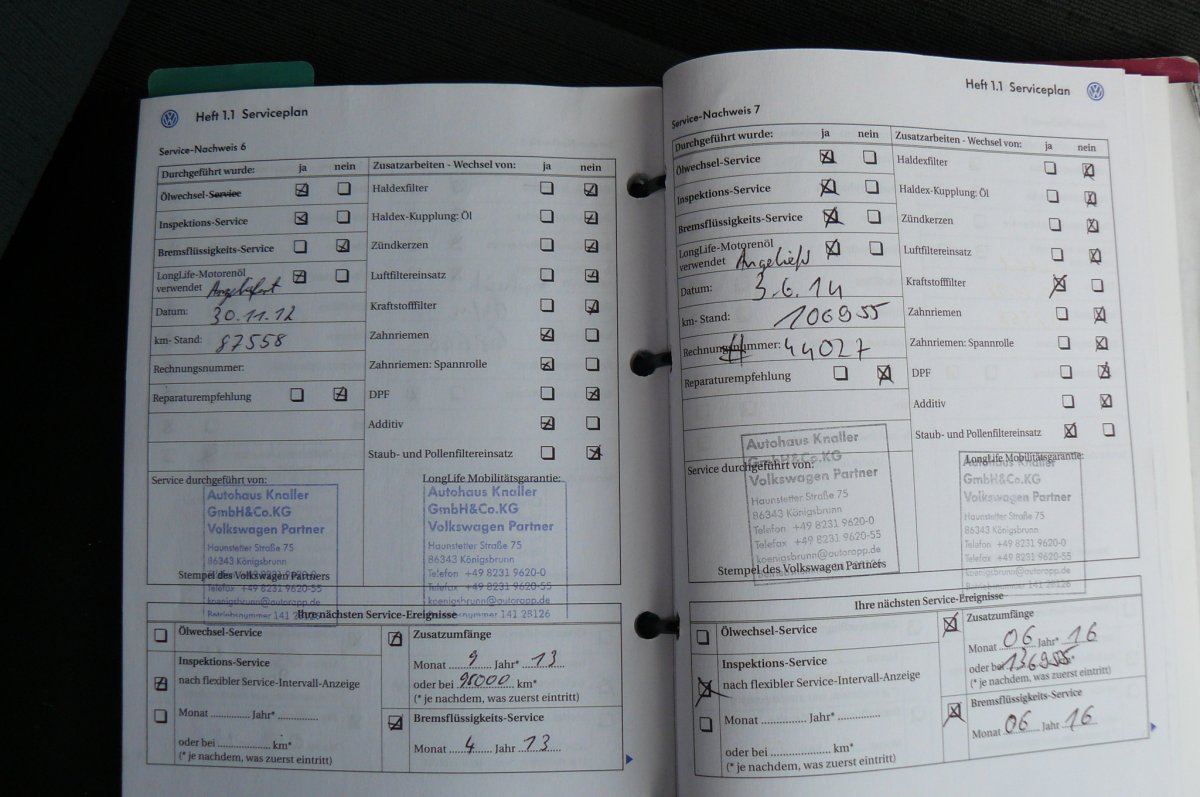 Heft 1.1 Serviceplan
Service-Nachweis 6
Durchgeführt wurde: ja nein
Ölwechsel-Service
Inspektions-Service
Bremsflüssigkeits-Service
LongLife-Motorenöl
verwendet
Datum: 30.11.12
km- Stand: 87558
Rechnungsnummer:
Reparaturempfehlung
Zusatzarbeiten - Wechsel von: ja nein
Haldexfilter
Haldex-Kupplung: Öl
Zündkerzen
Luftfiltereinsatz
Kraftstofffilter
Zahnriemen
Zahnriemen: Spannrolle
DPF
Additiv
Staub- und Pollenfiltereinsatz
Service durchgeführt von:
Autohaus Knaller
GmbH&Co.KG
Volkswagen Partner
Haunstetter Straße 75
86343 Königsbrunn
Telefon +49 8231 9620-0
Telefax +49 8231 9620-55
koenigsbrunn@autorapp.de
Betriebsnummer 141 28126
Stempel des Volkswagen Partners
LongLife Mobilitätsgarantie:
Autohaus Knaller
GmbH&Co.KG
Volkswagen Partner
Haunstetter Straße 75
86343 Königsbrunn
Telefon +49 8231 9620-0
Telefax +49 8231 9620-55
koenigsbrunn@autorapp.de
Betriebsnummer 141 28126
Ihre nächsten Service-Ereignisse
Ölwechsel-Service
Inspektions-Service
nach flexibler Service-Intervall-Anzeige
Monat .............. Jahr* ..............
oder bei ..................... km*
(* je nachdem, was zuerst eintritt)
Zusatzumfänge
Monat 9 Jahr* 13
oder bei 95000 km*
(* je nachdem, was zuerst eintritt)
Bremsflüssigkeits-Service
Monat 4 Jahr 13
Heft 1.1 Serviceplan
Service-Nachweis 7
Durchgeführt wurde: ja nein
Ölwechsel-Service
Inspektions-Service
Bremsflüssigkeits-Service
LongLife-Motorenöl
verwendet
Datum: 3.6.14
km- Stand: 106955
Rechnungsnummer: 44027
Reparaturempfehlung
Zusatzarbeiten - Wechsel von: ja nein
Haldexfilter
Haldex-Kupplung: Öl
Zündkerzen
Luftfiltereinsatz
Kraftstofffilter
Zahnriemen
Zahnriemen: Spannrolle
DPF
Additiv
Staub- und Pollenfiltereinsatz
Service durchgeführt von:
Autohaus Knaller
GmbH&Co.KG
Volkswagen Partner
Haunstetter Straße 75
86343 Königsbrunn
Telefon +49 8231 9620-0
Telefax +49 8231 9620-55
koenigsbrunn@autorapp.de
Stempel des Volkswagen Partners
LongLife Mobilitätsgarantie:
Autohaus Knaller
GmbH&Co.KG
Volkswagen Partner
Haunstetter Straße 75
86343 Königsbrunn
Telefon +49 8231 9620-0
Telefax +49 8231 9620-55
koenigsbrunn@autorapp.de
Ihre nächsten Service-Ereignisse
Ölwechsel-Service
Inspektions-Service
nach flexibler Service-Intervall-Anzeige
Monat .............. Jahr* ..............
oder bei ..................... km*
(* je nachdem, was zuerst eintritt)
Zusatzumfänge
Monat 06 Jahr* 16
oder bei 136955
(* je nachdem, was zuerst eintritt)
Bremsflüssigkeits-Service
Monat 06 Jahr 16